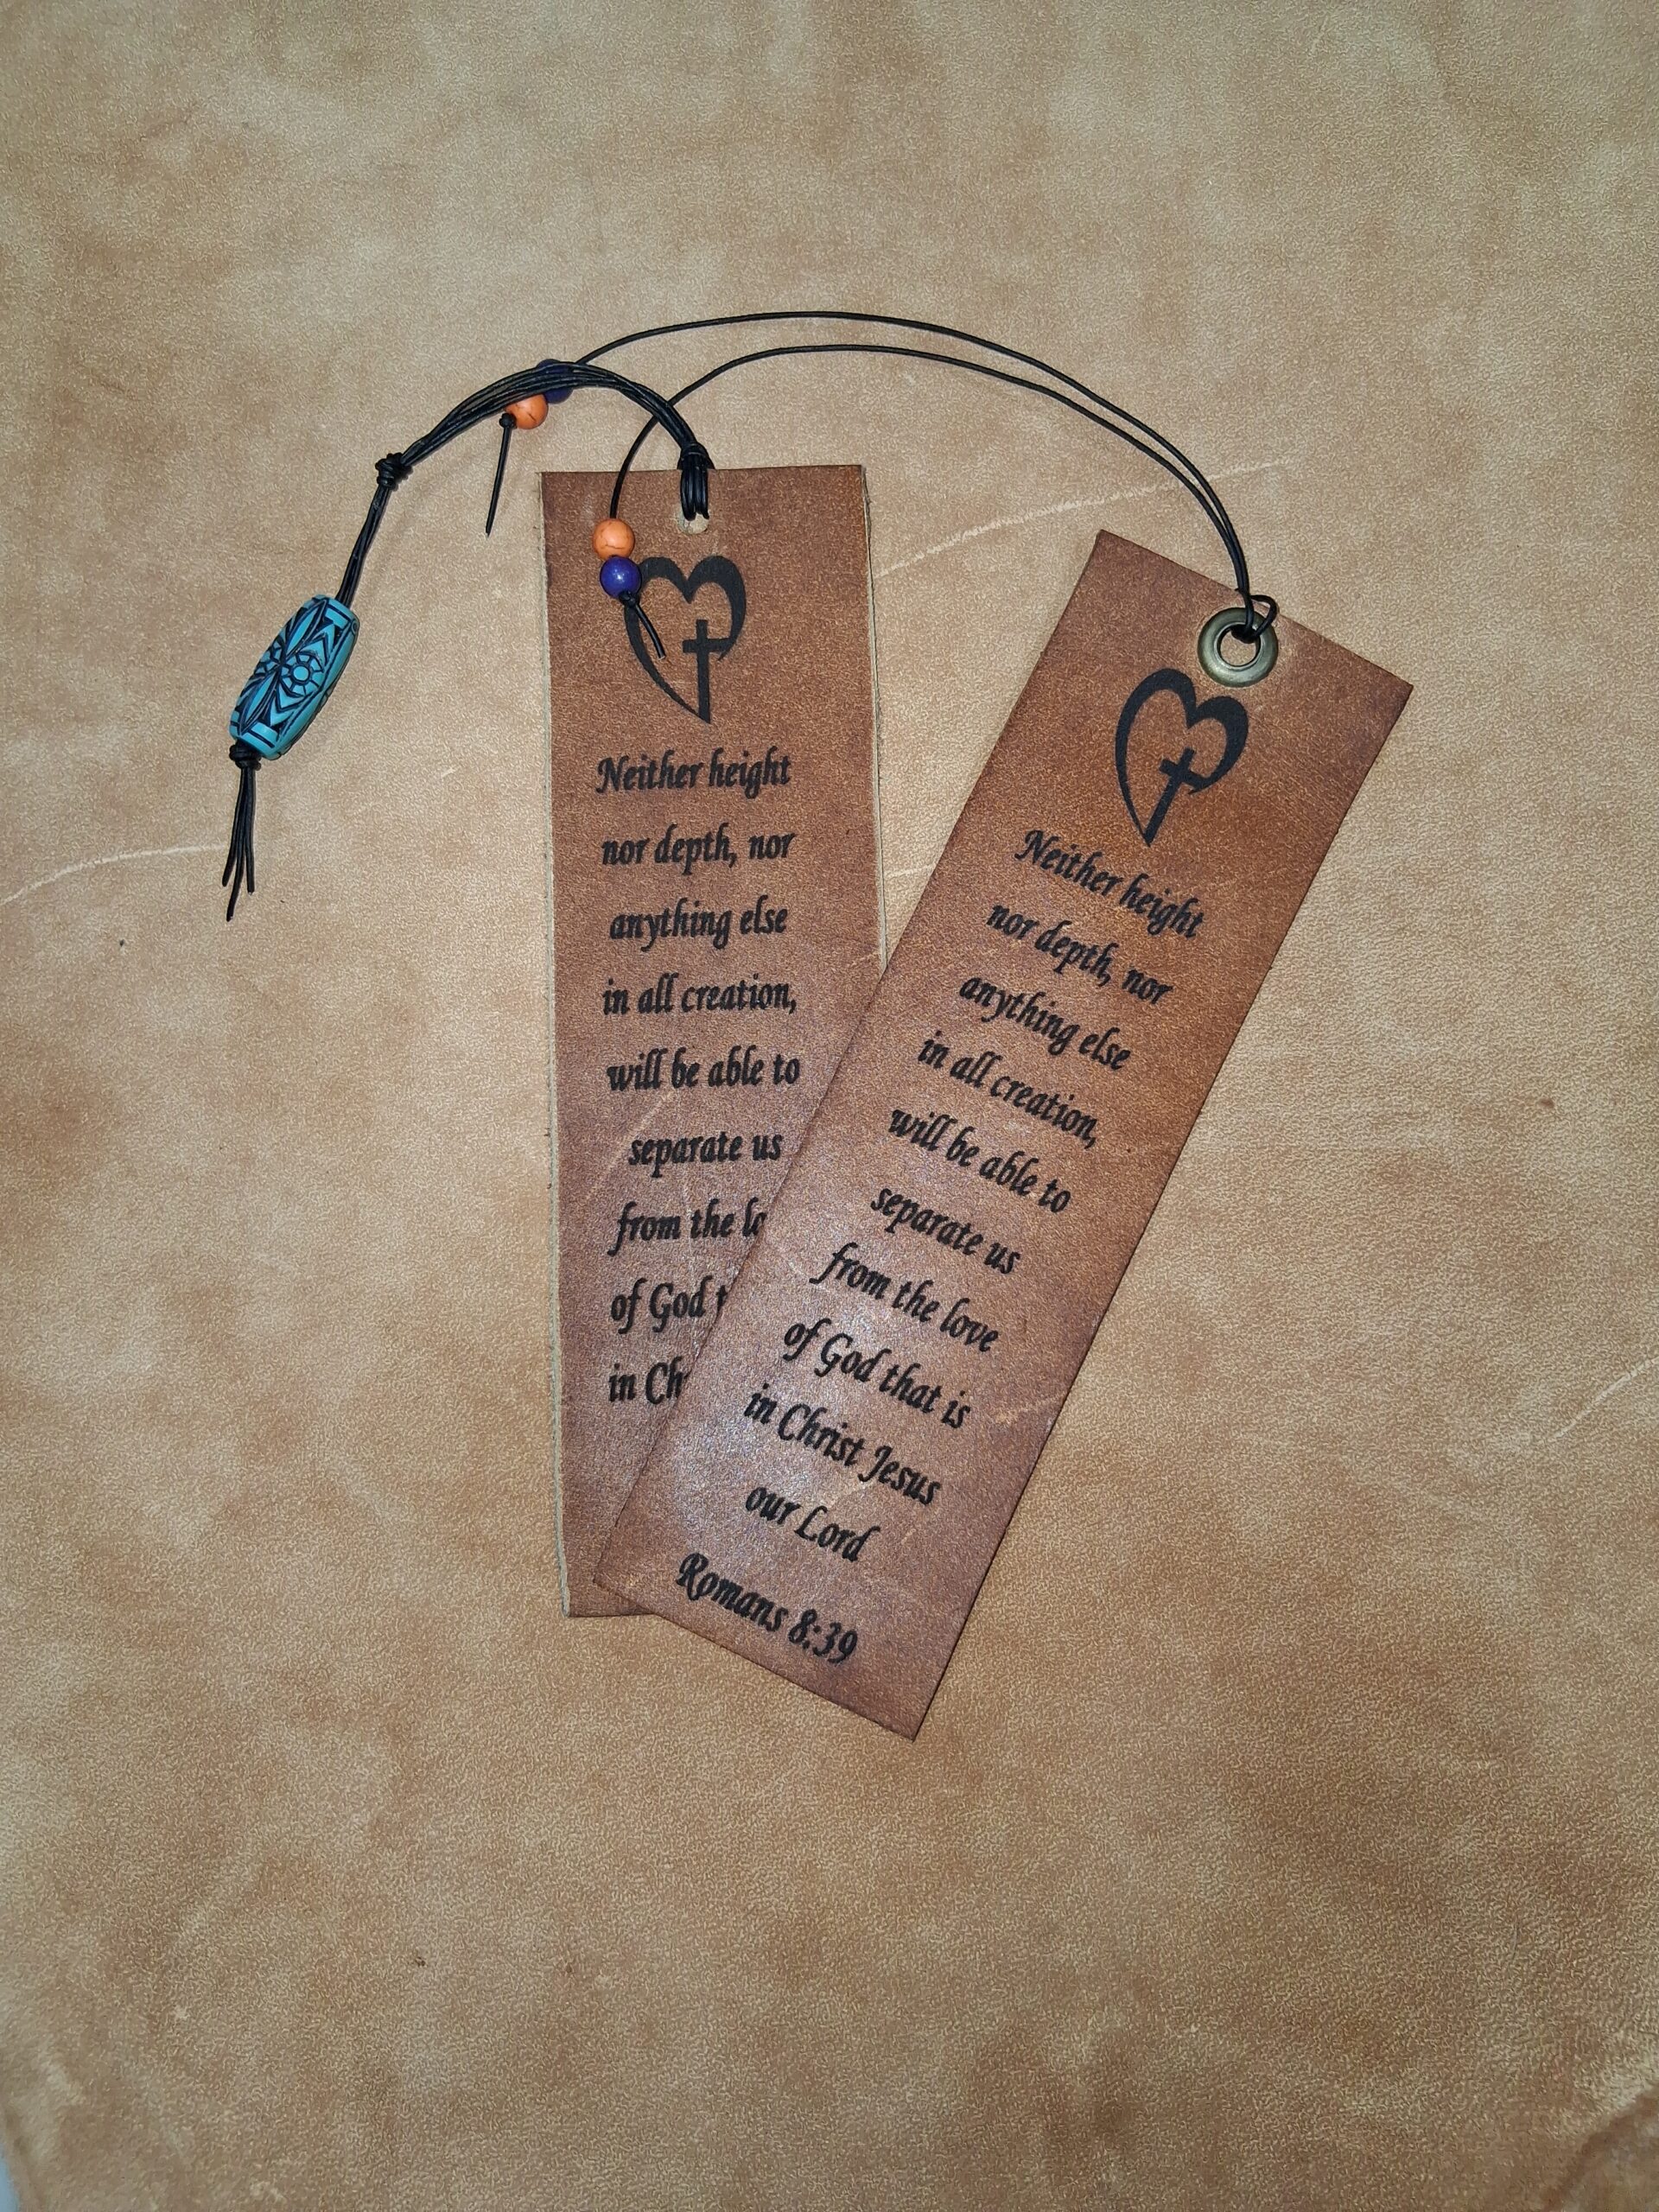 Neither height
nor depth, nor
anything else
in all creation,
will be able to
separate us
from the
of God
in
Neither height
nor depth, nor
anything else
in all creation,
will be able to
separate us
from the love
of God that is
in Christ Jesus
our Lord
Romans 8:39